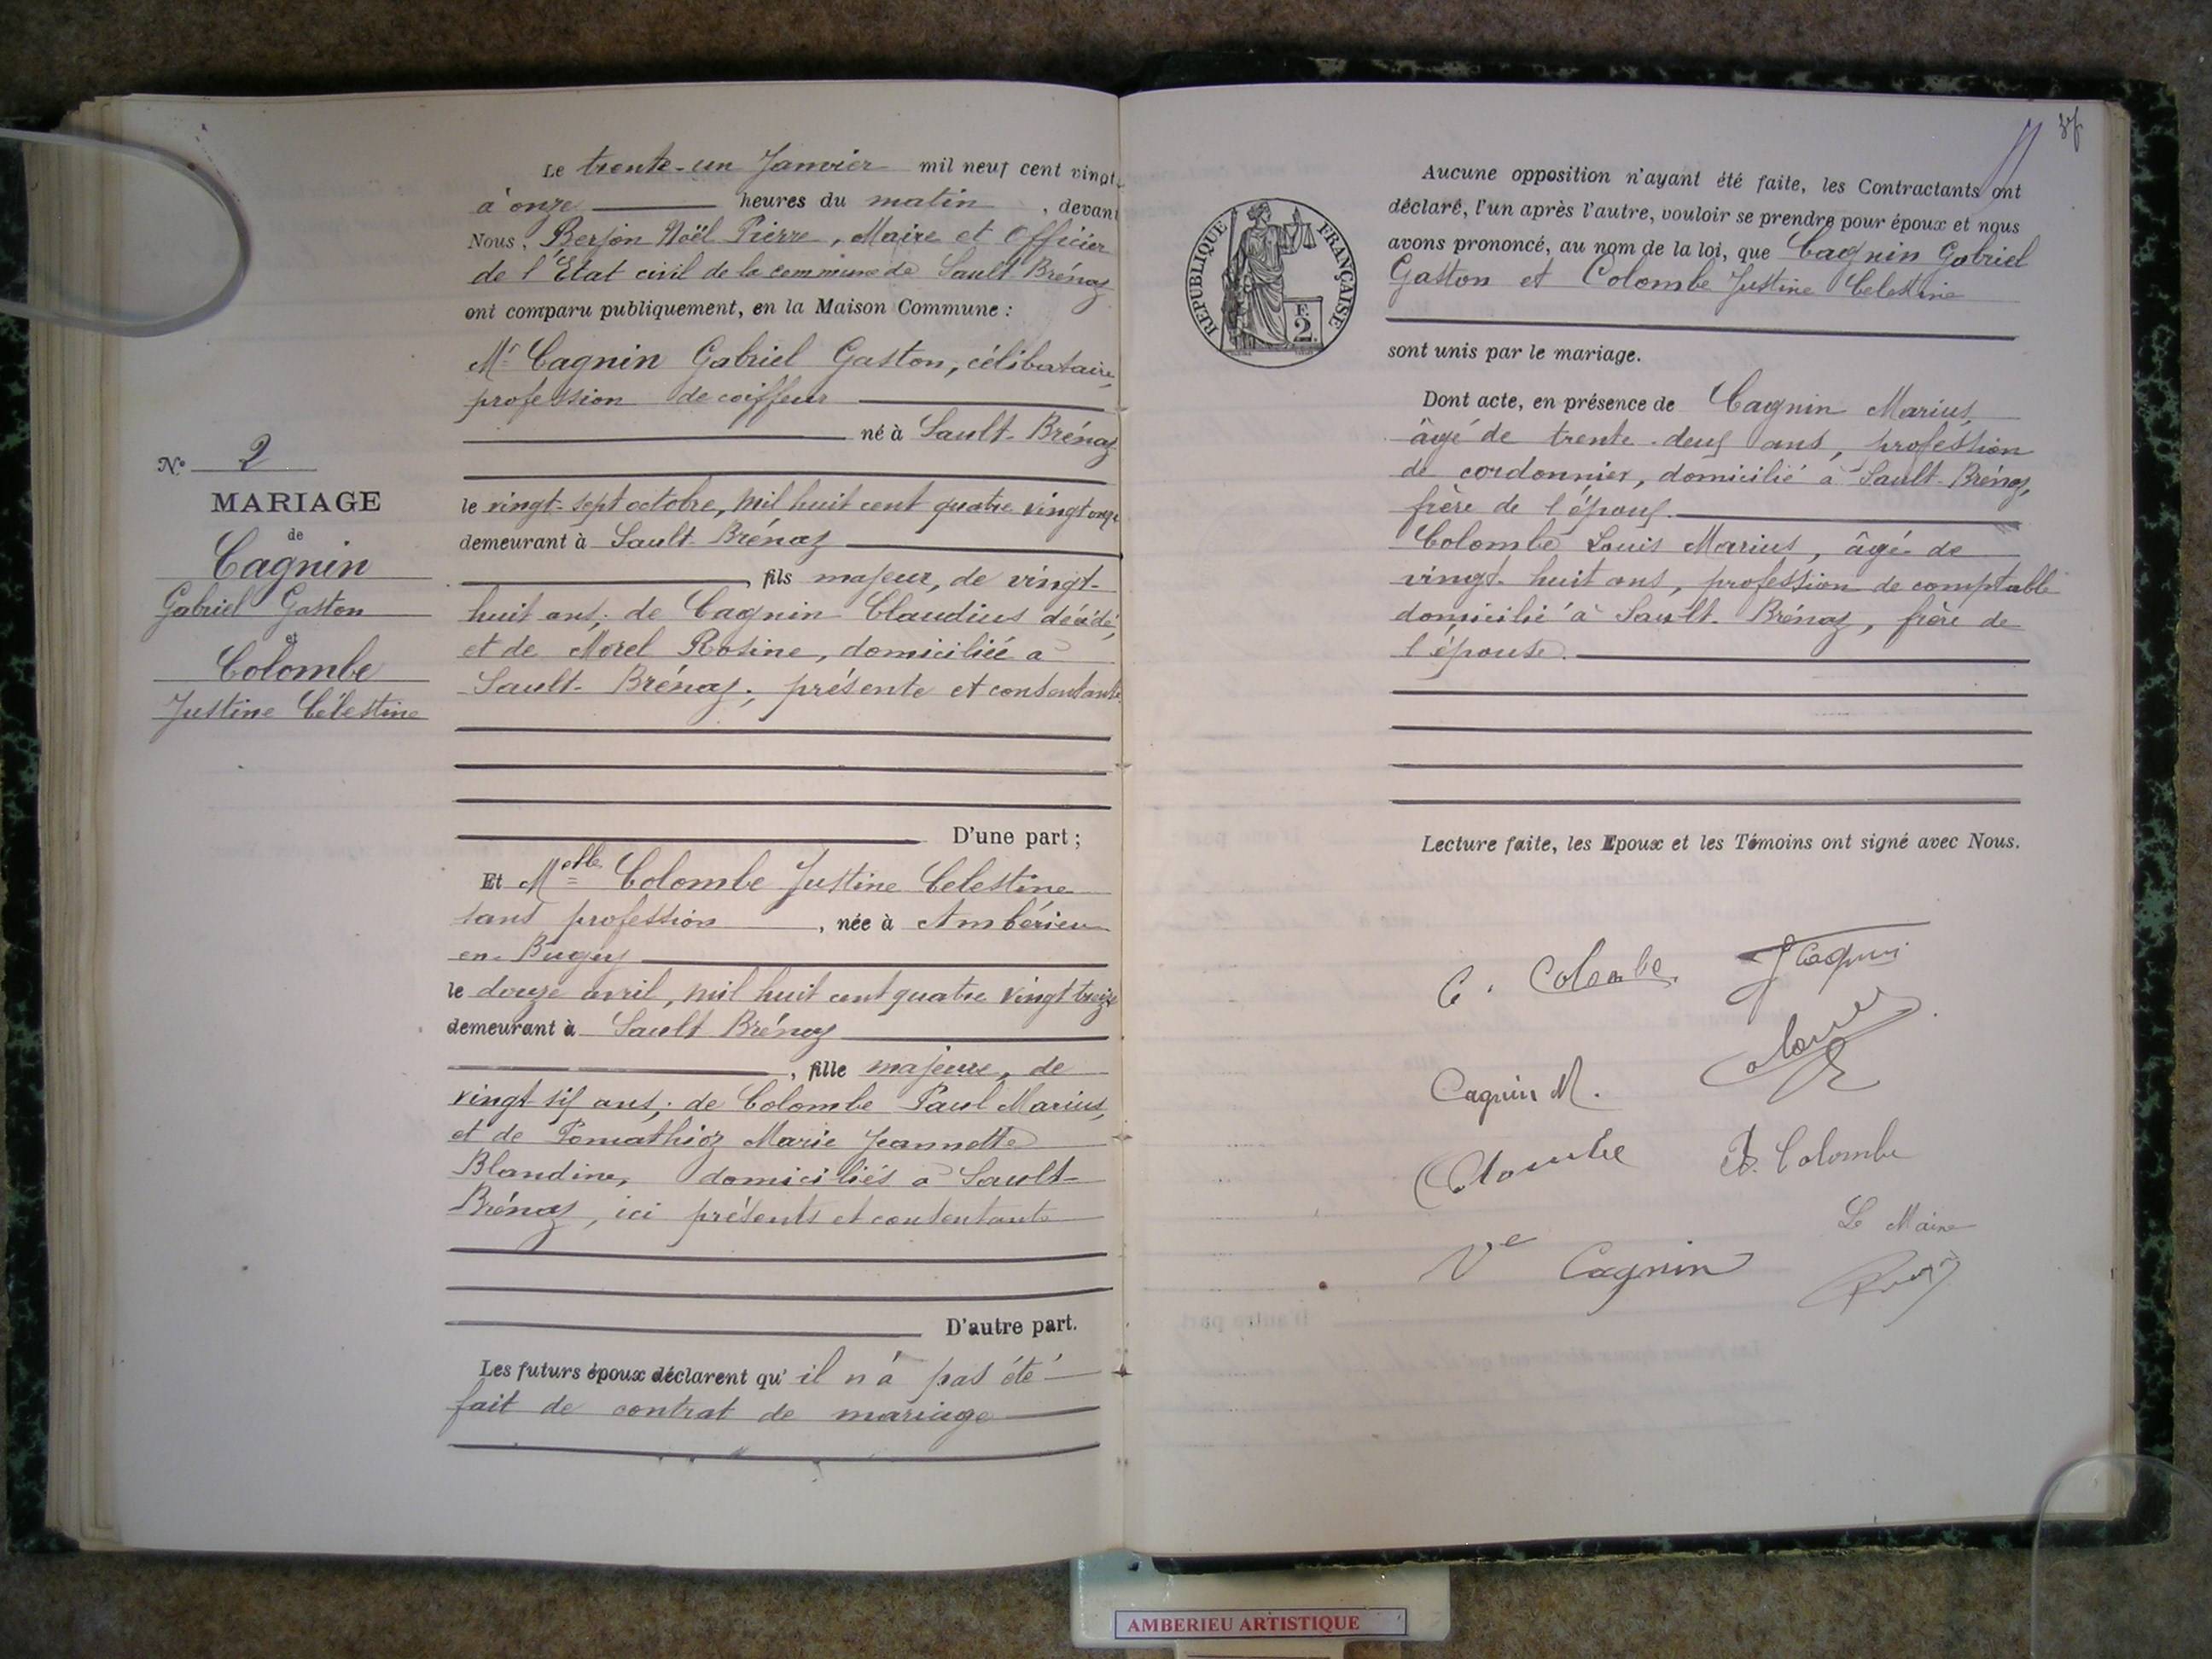 Le trente-un Janvier mil neuf cent vingt
à onze heures du matin, devant
Nous, Berjon Noël Pierre, Maire et Officier
de l'Etat civil de la commune de Sault Brénaz
ont comparu publiquement, en la Maison Commune :
Mr Cagnin Gabriel Gaston, célibataire,
profession de coiffeur
né à Sault-Brénaz
le vingt-sept octobre, mil huit cent quatre vingt onze
demeurant à Sault-Brénaz
, fils majeur, de vingt-
huit ans; de Cagnin Claudius décédé,
et de Morel Rosine, domiciliée à
Sault-Brénaz; présente et consentante
D'une part ;
N° 2
MARIAGE
de
Cagnin
Gabriel Gaston
et
Colombe
Justine Célestine
Et Melle Colombe Justine Celestine
sans profession, née à Ambérieu
en-Bugey
le douze avril, mil huit cent quatre vingt treize
demeurant à Sault Brénaz
, fille majeure, de
vingt six ans; de Colombe Paul Marius,
et de Pomathioz Marie Jeannette
Blandine, domiciliés à Sault-
Brénaz, ici présents et consentants
D'autre part.
Les futurs époux déclarent qu'il n'a pas été
fait de contrat de mariage
REPUBLIQUE FRANÇAISE
F. 2.
Aucune opposition n'ayant été faite, les Contractants ont
déclaré, l'un après l'autre, vouloir se prendre pour époux et nous
avons prononcé, au nom de la loi, que Cagnin Gabriel
Gaston et Colombe Justine Celestine
sont unis par le mariage.
Dont acte, en présence de Cagnin Marius,
âgé de trente-deux ans, profession
de cordonnier, domicilié à Sault-Brénaz,
frère de l'époux.
Colombe Louis Marius, âgé de
vingt-huit ans, profession de comptable
domicilié à Sault-Brénaz, frère de
l'épouse.
Lecture faite, les Epoux et les Témoins ont signé avec Nous.
C. Colombe
G Cagnin
Cagnin M.
Colombe
B. Colombe
Le Maire
Ve Cagnin
AMBERIEU ARTISTIQUE